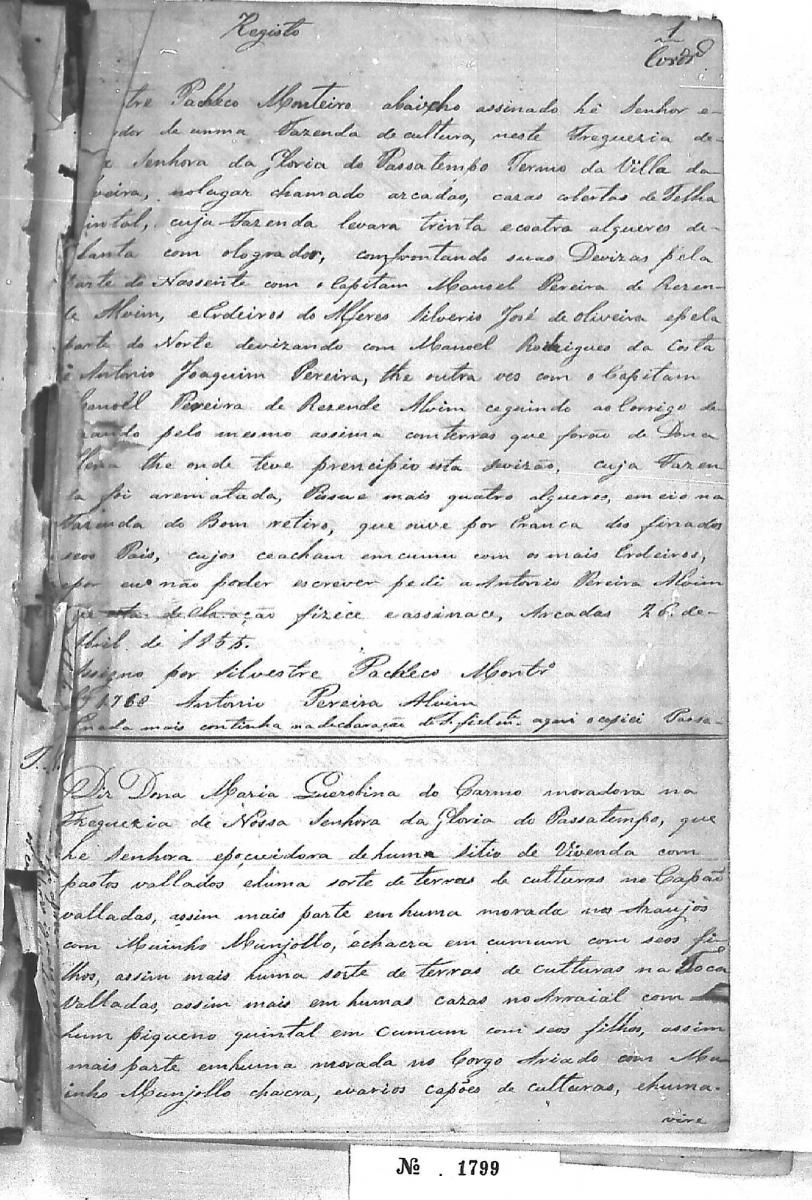 Registo
1
Cord.º
tre Pacheco Monteiro abaixho assinado hé Senhor e-
dor de umma Fazenda de cultura, neste Freguezia de-
Senhora da Gloria do Passatempo Termo da Villa da
veira, nolugar chamado arcadas, cazas cobertas de Telha
intal, cuja Fazenda levara trinta ecoatra algueres de-
lanta com ologrador, comfrontando suas Devizas pela
parte do Nassente com o Capitam Manoel Pereira de Rezen-
de Alvim, eErdeiros do Alferes Silverio José de oliveira epela
parte do Norte devizando com Manoel Rodrigues da Costa
e Antonio Joaquim Pereira, the outra ves com o Capitam
Manoell Pereira de Rezende Alvim ceguindo ao Corrigo de-
zando pelo mesmo assima comterras que forão de Dona
llena the onde teve prencipio esta devizão, cuja Fazen
da foi arematada, Possue mais quatro algueres, em eio na
Fazenda do Bom retiro, que ouve por Eranca dos finados
seos Pais, cujos ceacham emcumu com os mais Erdeiros,
epor eu não poder escrever pedi a Antonio Pereira Alvim
que esta declaração fizece eassinace, Arcadas 26 de-
Abril de 1855.
Assigno por Silvestre Pacheco Montr.º
1760 Antonio Pereira Alvim
Enada mais continha na declaração fielm.te aqui o copiei Passa-
Diz Dona Maria Querobina do Carmo moradora na
Freguezia de Nossa Senhora da Gloria do Passatempo, que
hé Senhora epocuidora dehuma sitio de Vivenda com
pastos vallados ehuma sorte de terras de culturas no Capão
valladas, assim mais parte em huma morada nos Araujos
com Muinho Munjollo, échacra em cumum com seos fi-
lhos, assim mais huma sorte de terras de culturas na Toca
Valladas, assim mais em humas cazas no Arraial com
hum piqueno quintal em Cumum com seos filhos, assim
mais parte emhuma morada no Corgo Ariado com Mu-
inho Munjollo chacra, evarios capões de culturas, ehuma-
vire
Nº . 1799